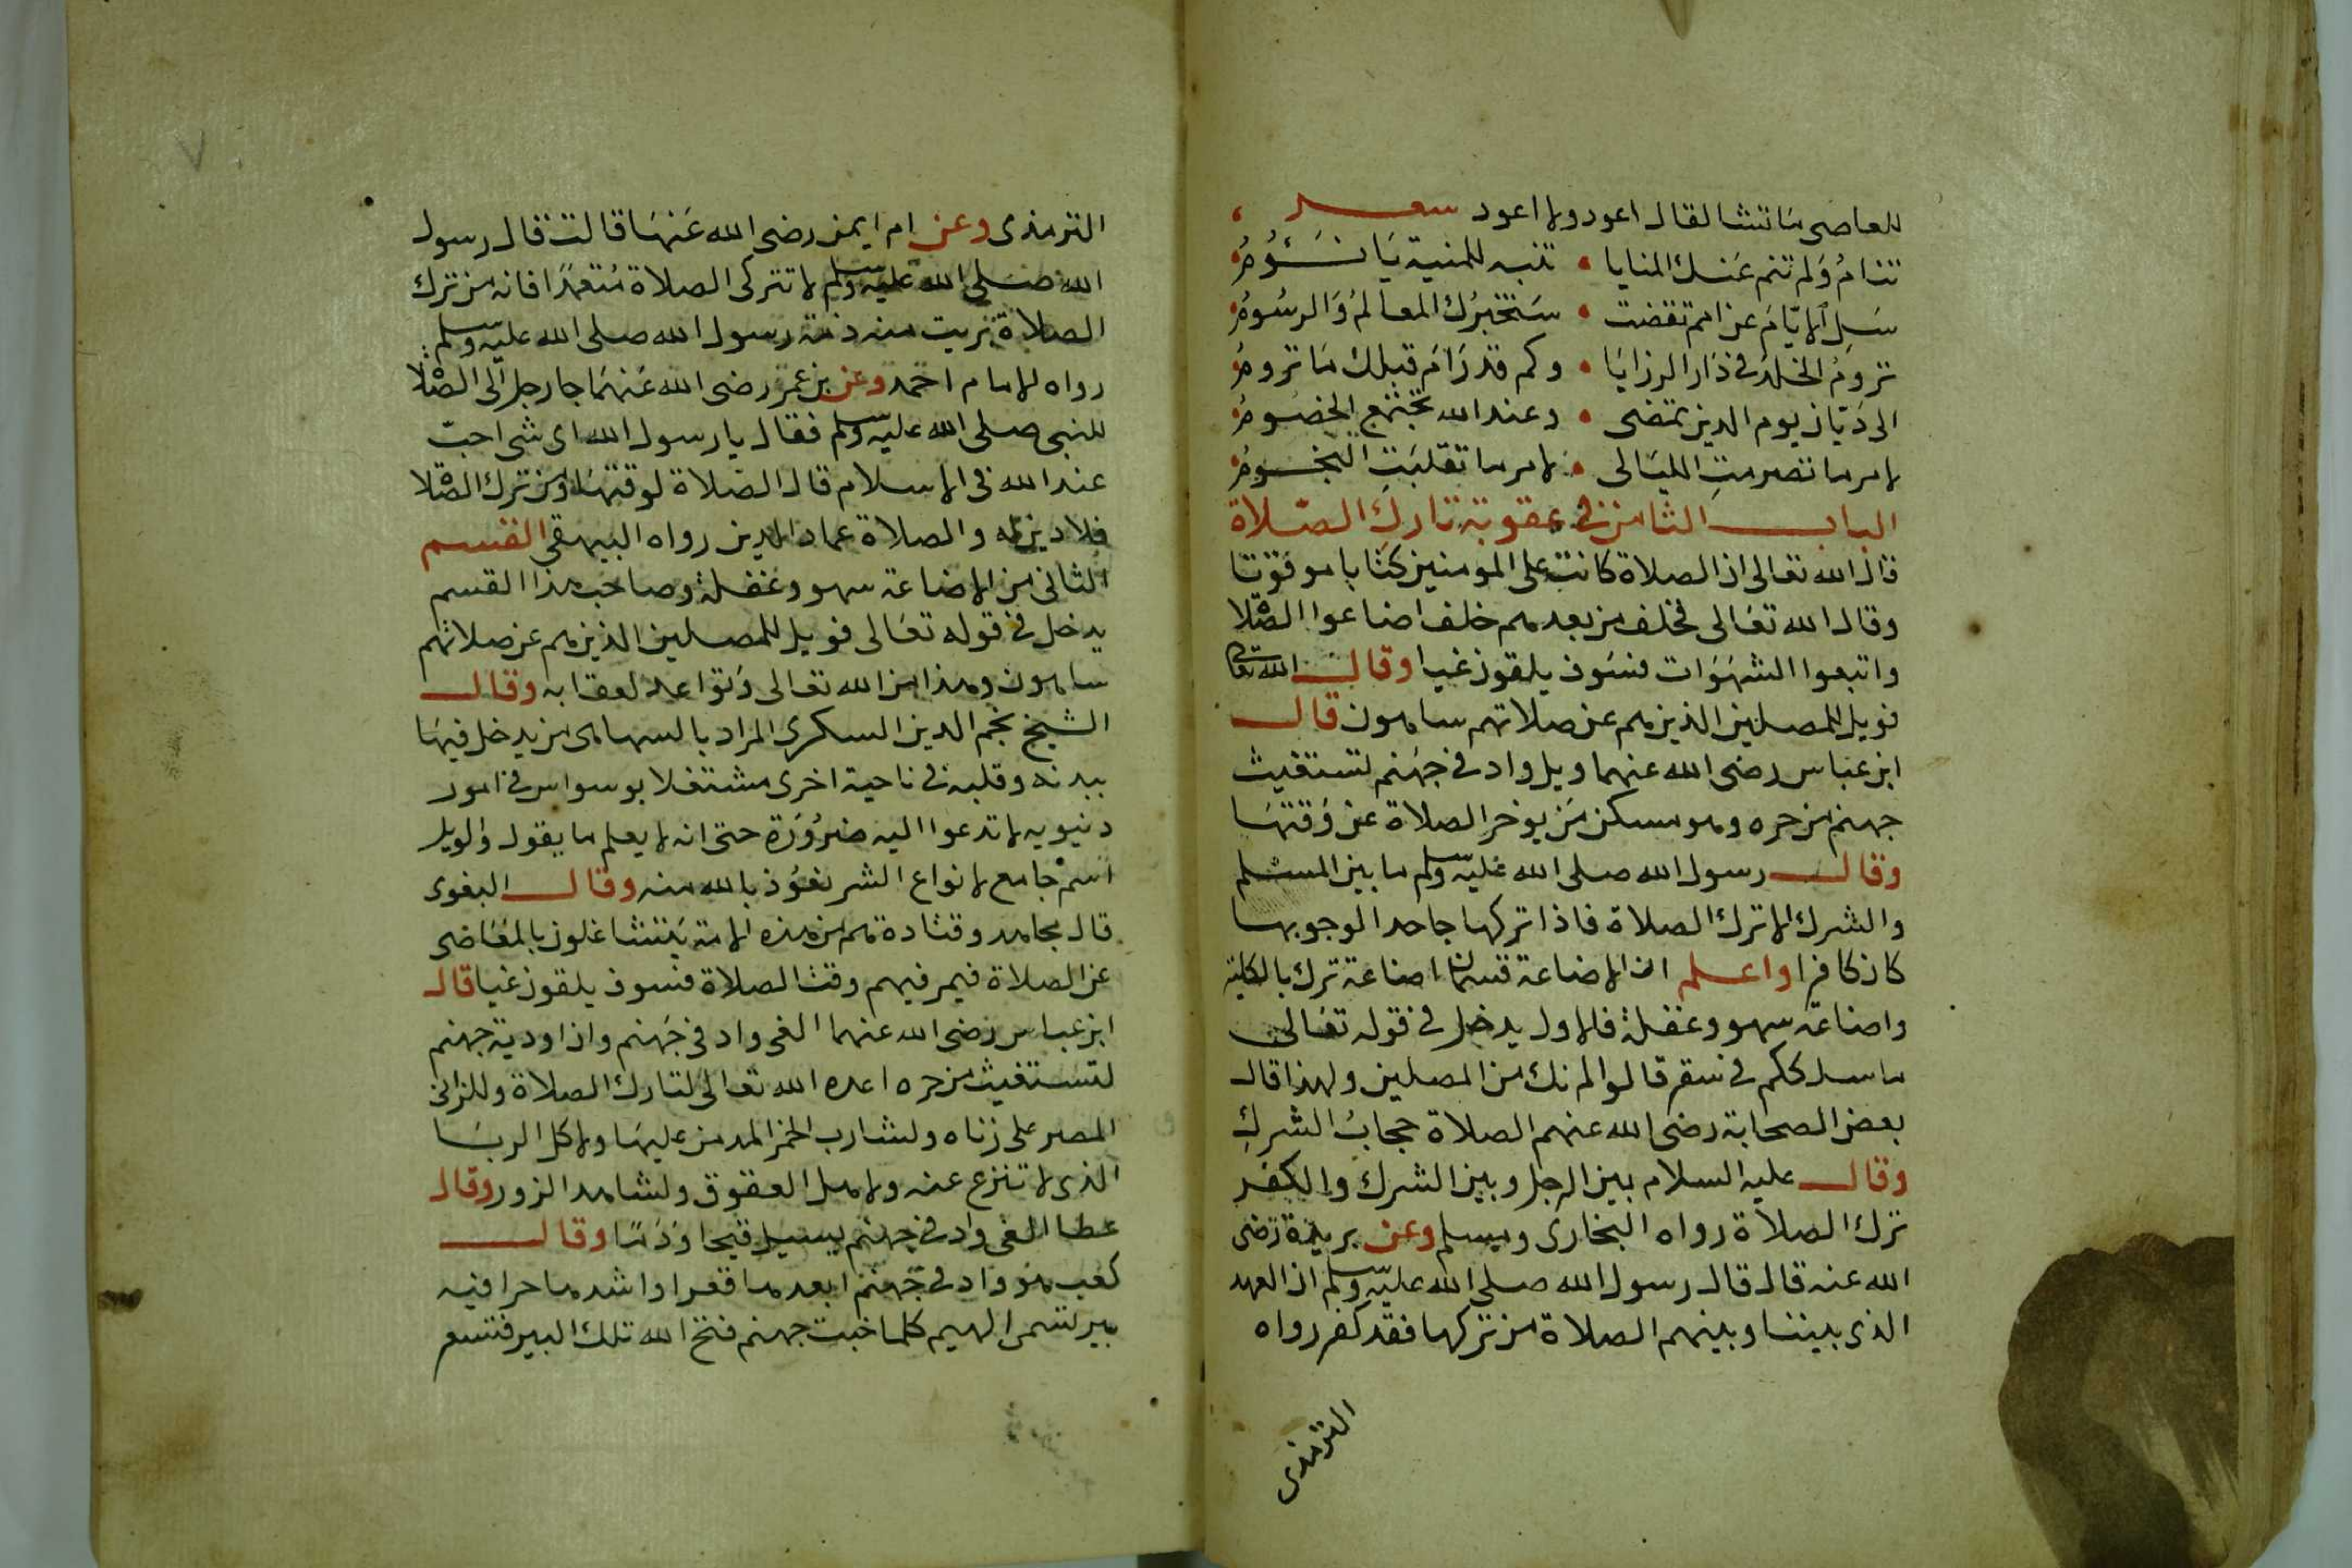 للعاصى ما تشا لقال اعود ولا اعود شعر
تنام ولم تنم عنك المنايا • تنبه للمنية يا نؤوم
سل الايام عن امم تقضت • ستخبرك المعالم والرسوم
تروم الخلد فى دار الرزايا • وكم قد رام قبلك ما تروم
الى ديان يوم الدين نمضى • وعند الله تجتمع الخصوم
لامر ما تصرمت الليالى • لامر ما تقلبت النجوم
الباب الثامن فى عقوبة تارك الصلاة
قال الله تعالى ان الصلاة كانت على المومنين كتابا موقوتا
وقال الله تعالى فخلف من بعدهم خلف اضاعوا الصلاة
واتبعوا الشهوات فسوف يلقون غيا وقال الله تعالى
فويل للمصلين الذين هم عن صلاتهم ساهون قال
ابن عباس رضى الله عنهما ويل واد فى جهنم تستغيث
جهنم من حره وهو مسكن من يوخر الصلاة عن وقتها
وقال رسول الله صلى الله عليه وسلم ما بين المسلم
والشرك الا ترك الصلاة فاذا تركها جاحدا لوجوبها
كان كافرا واعلم ان الاضاعة قسمان اضاعة ترك بالكلية
واضاعة سهو وغفلة فالاول يدخل فى قوله تعالى
ما سلككم فى سقر قالوا لم نك من المصلين ولهذا قال
بعض الصحابة رضى الله عنهم الصلاة حجاب الشرك
وقال عليه السلام بين الرجل وبين الشرك والكفر
ترك الصلاة رواه البخارى ومسلم وعن بريدة رضى
الله عنه قال قال رسول الله صلى الله عليه وسلم ان العهد
الذى بيننا وبينهم الصلاة من تركها فقد كفر رواه
الترمذى
٧
الترمذى وعن ام ايمن رضى الله عنها قالت قال رسول
الله صلى الله عليه وسلم لا تتركى الصلاة متعمدا فانه من ترك
الصلاة بريت منه ذمة رسول الله صلى الله عليه وسلم
رواه الامام احمد وعن بن عمر رضى الله عنهما جا رجل الى الصلاة
للنبى صلى الله عليه وسلم فقال يا رسول الله اى شى احب
عند الله فى الاسلام قال الصلاة لوقتها ومن ترك الصلاة
فلا دين له والصلاة عماد الدين رواه البيهقى القسم
الثانى من الاضاعة سهو وغفلة وصاحب هذا القسم
يدخل فى قوله تعالى فويل للمصلين الذين هم عن صلاتهم
ساهون وهذا من الله تعالى وتواعد لعقابه وقال
الشيخ نجم الدين السكرى المراد بالسهاهى من يدخل فيها
ببدنه وقلبه فى ناحية اخرى مشتغلا بوسواس فى امور
دنيويه لا تدعوا اليه ضرورة حتى انه لا يعلم ما يقول والويل
اسم جامع لانواع الشر نعوذ بالله منه وقال البغوى
قال مجاهد وقتادة هم من هذه الامة يتشاغلون بالمعاصى
عن الصلاة فيمر فيهم وقت الصلاة فسوف يلقون غيا قال
ابن عباس رضى الله عنهما الغى واد فى جهنم وان اودية جهنم
لتستغيث من حره اعده الله تعالى لتارك الصلاة وللزانى
المصر على زناه ولشارب الخمر المدمن عليها ولاكل الربا
الذى لا تنزع عنه ولاهل العقوق ولشاهد الزور وقال
عطا الغى واد فى جهنم يسيل قيحا ودما وقال
كعب هو واد فى جهنم ابعدها قعرا واشدها حرا فيه
بير تسمى الهيم كلما خبت جهنم فتح الله تلك البير فتسعر